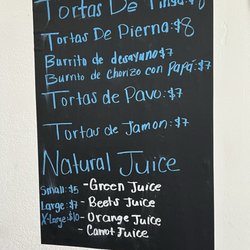 Tortas De Tinga:$8
Tortas De Pierna:$8
Burrito de desayuno$7
Burnto de chorizo con Papa:$7
Tortas de Pavo:$7
Tortas de Jamon:$7
Natural Juice
Small:$5 - Green Juice
Large:$7 - Beets Juice
X-Large:$10 - Orange Juice
- Carrot Juice